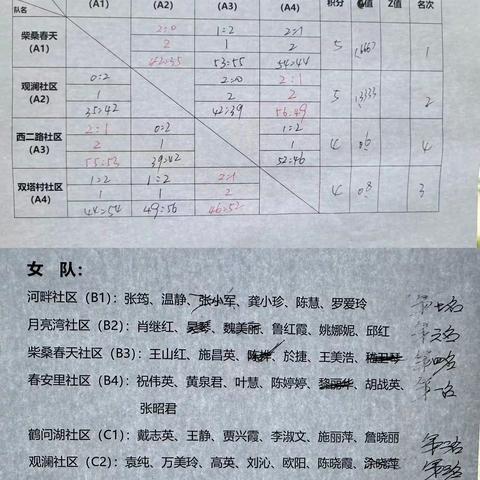 队名 (A1) (A2) (A3) (A4) 积分 值 Z值 名次
柴桑春天 2:0 1:2 2:1
(A1) 2 1 2 5 1
42:35 53:55 54:44
观澜社区 0:2 2:0 2:1
(A2) 1 2 2 5 2
35:42 42:39 56:49
西二路社区 2:1 0:2 1:2
(A3) 2 1 1 4 4
55:53 39:42 52:46
双塔村社区 1:2 1:2 2:1
(A4) 1 1 2 4 3
44:54 49:56 46:52
女 队：
河畔社区（B1）：张筠、温静、张小军、龚小珍、陈慧、罗爱玲 第七名
月亮湾社区（B2）：肖继红、吴琴、魏美丽、鲁红霞、姚娜妮、邱红 第六名
柴桑春天社区（B3）：王山红、施昌英、於捷、王美浩、 第四名
春安里社区（B4）：祝伟英、黄泉君、叶慧、陈婷婷、黎丽华、胡战英、 第一名
张昭君
鹤问湖社区（C1）：戴志英、王静、贾兴霞、李淑文、施丽萍、詹晓丽
观澜社区（C2）：袁纯、万美玲、高英、刘沁、欧阳、陈晓霞、涂晓萍